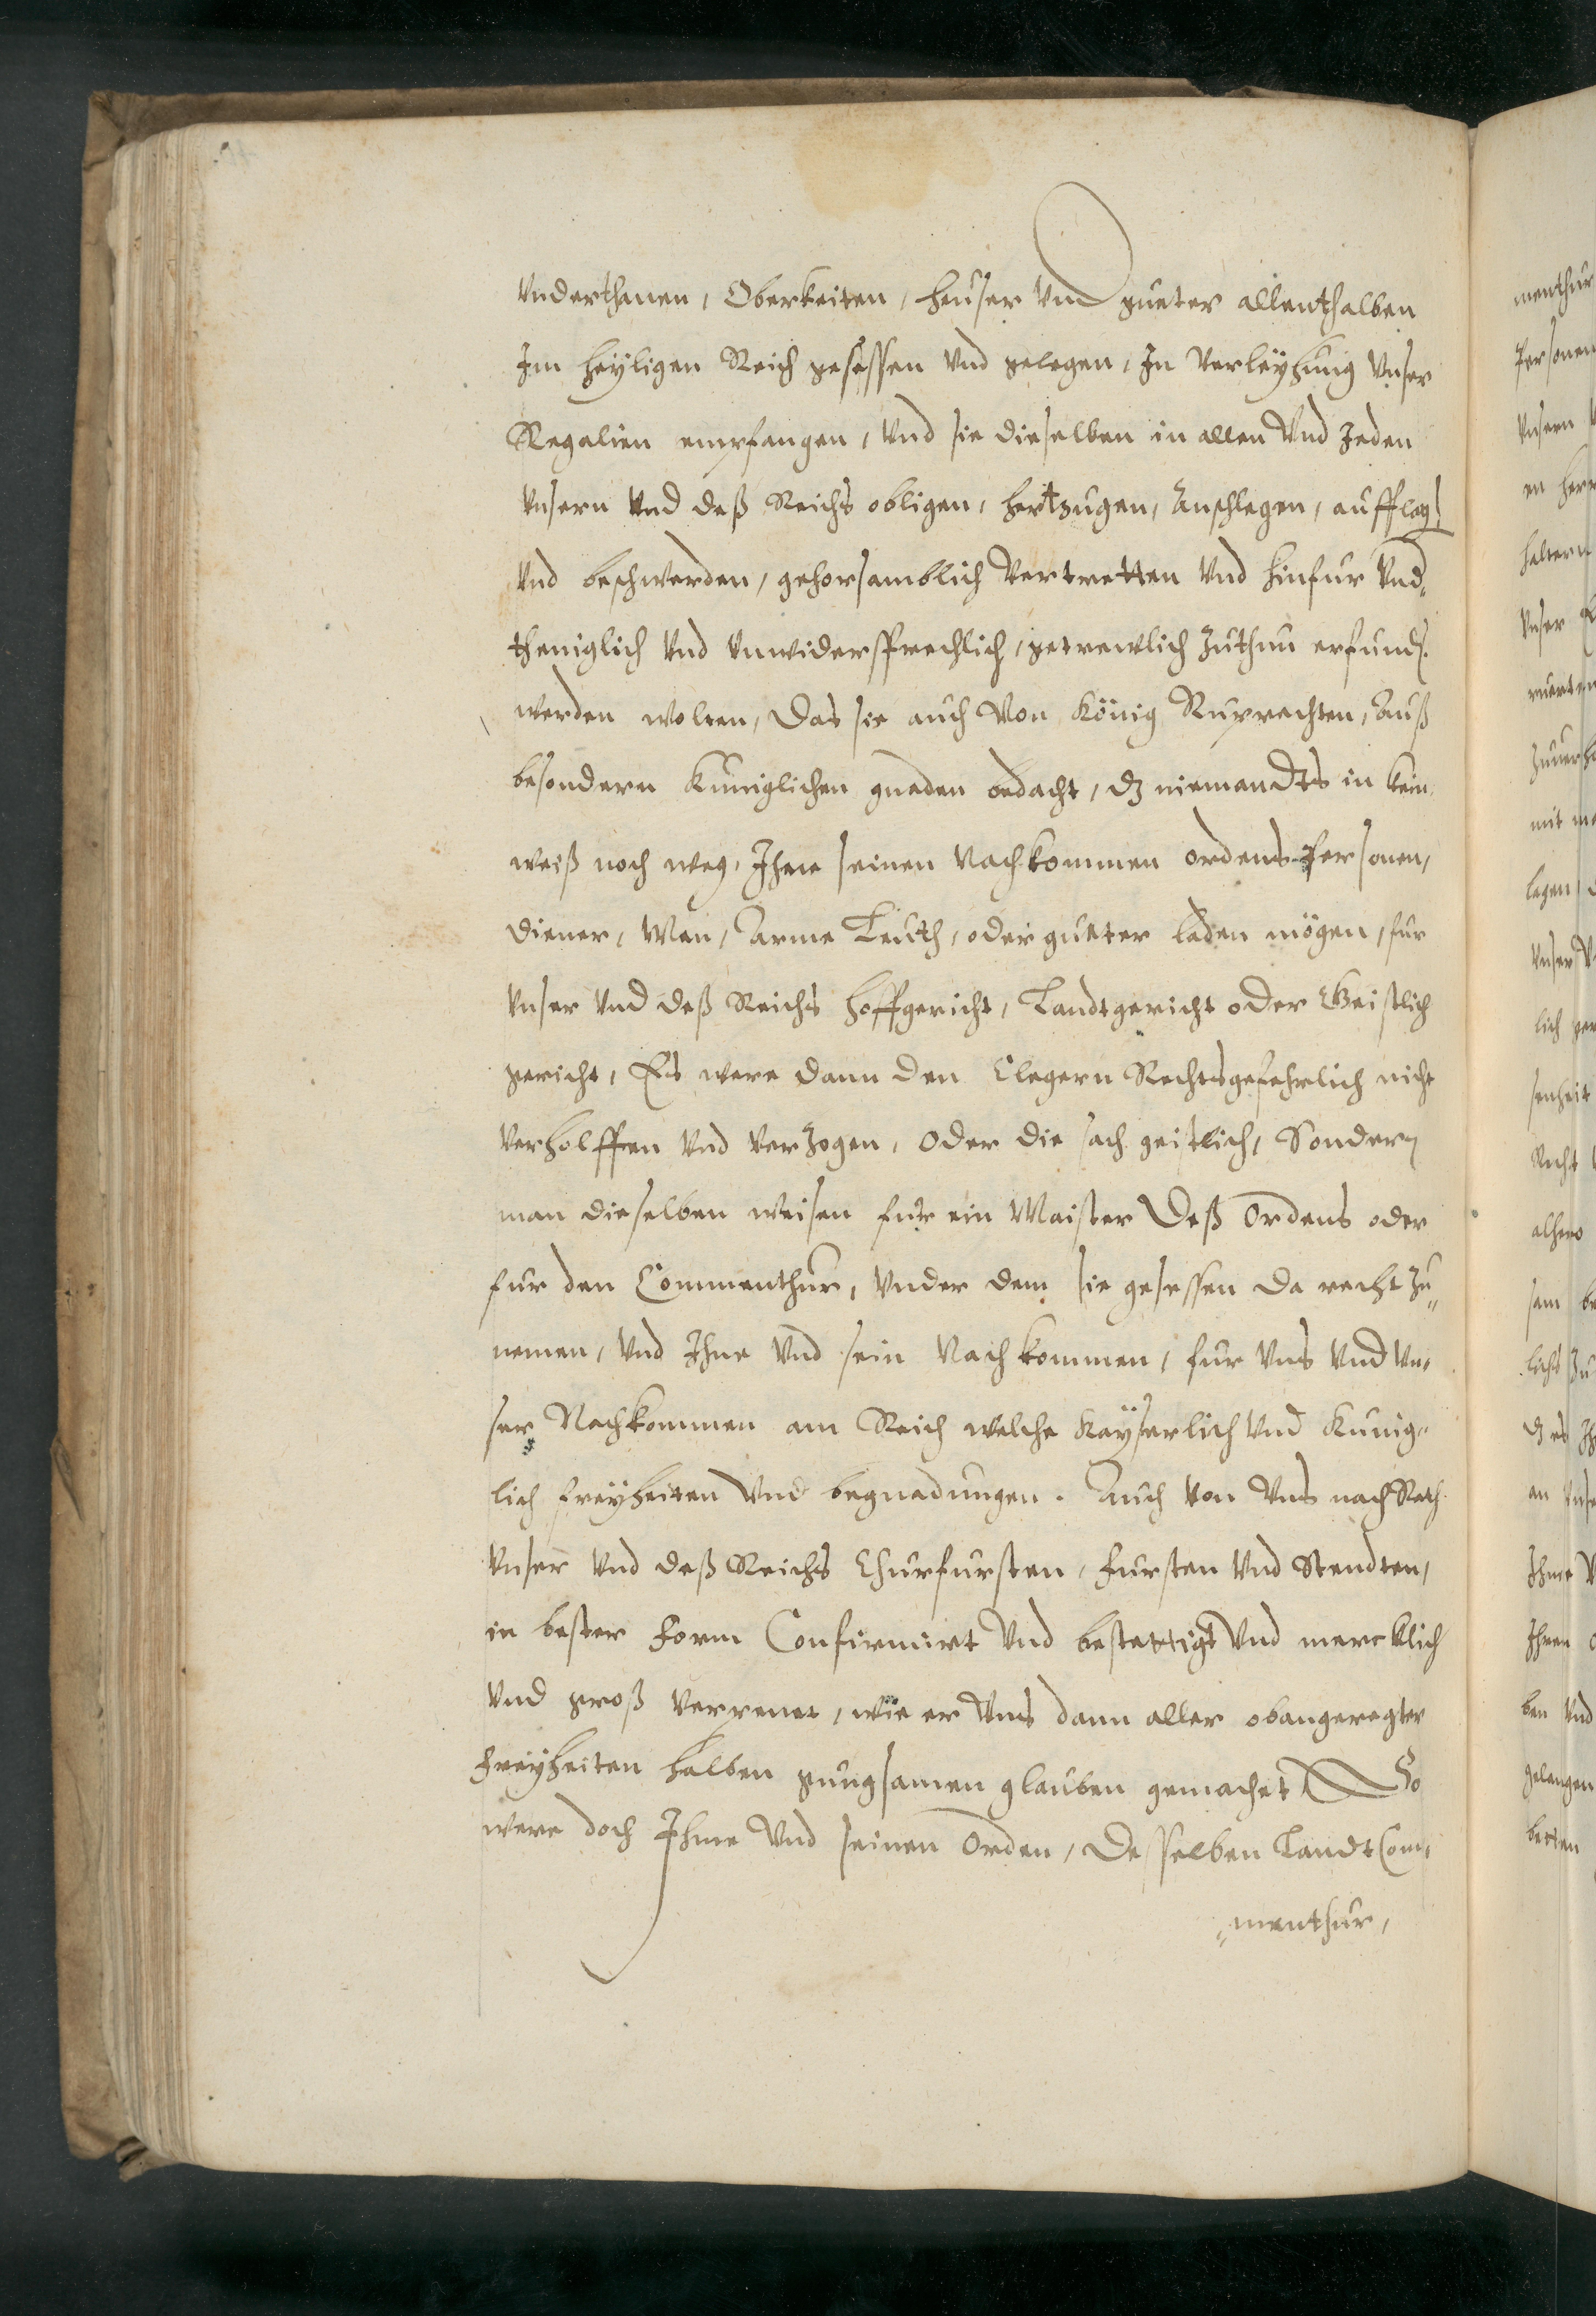 Vnderthanen, Oberkeiten, heuser Vnd gueter allenthalben
Im heyligen Reich gesessen Vnd gelegen, In Verleyhung Vnser
Regalien empfangen, Vnd sie dieselben in allen Vnd Jeden
Vnsern Vnd deß Reichs obligen, hertzugen, Anschlegen, aufflag
Vnd beschwerden, gehorsamblich Vertretten Vnd hinfur Vnd„
theniglich Vnd Vnwidersprechlich, getrewlich Zuthun erfund.
werden wolten, Das sie auch Von König Ruprechten, Auß
besondern Kuniglichen gnaden bedacht, dz niemandts in kein
weiß noch weg, Ihne seinen Nachkommen ordens Personen,
diener, Man, Arme Leuth, oder gueter laden mögen, fur
Vnser Vnd deß Reichs hoffgericht, Landtgericht oder Geistlich
gericht, Es were dann den Clegern Rechts gefehrlich nicht
Verholffen Vnd Verzogen, oder die sach geistlich, Sondern
man dieselben weisen fur ein Maister deß Ordens oder
fur den Commenthur, Vnder dem sie gesessen da recht Zu„
nemen, Vnd Ihne Vnd sein Nachkommen, fur Vns Vnd Vn„
ser Nachkommen am Reich welche Kayserlich Vnd Kunig„
lich freyheiten Vnd begnadungen. Auch Von Vns nach Rath
Vnser Vnd deß Reichs Churfursten, Fursten Vnd Stendten,
in bester Form Confirmirt Vnd bestettigt Vnd mercklich
Vnd groß Verpenet, wie er Vns dann aller obangeregter
Freyheiten halben gnugsamen glauben gemachet So
were doch Ihme Vnd seinen Orden, deßelben Landt Com„
„menthur,
menthur
Personen
Vnsern
en
haltern
Vnser
mit
legen
Vnser
lich
senheit
Recht
alhero
sam
lichs
dz es
an
Ihme
Ihren
ben Vnd
gelangen